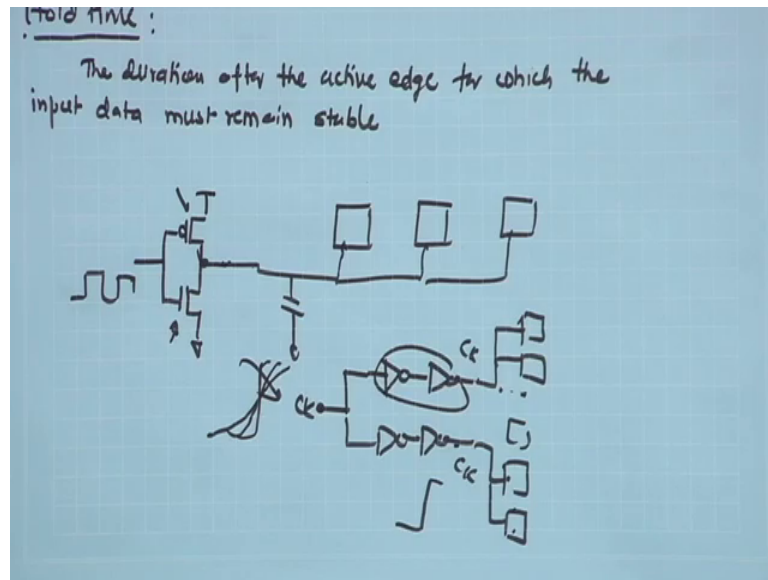 Hold time :
The duration after the active edge for which the
input data must remain stable
CK
CK
CK